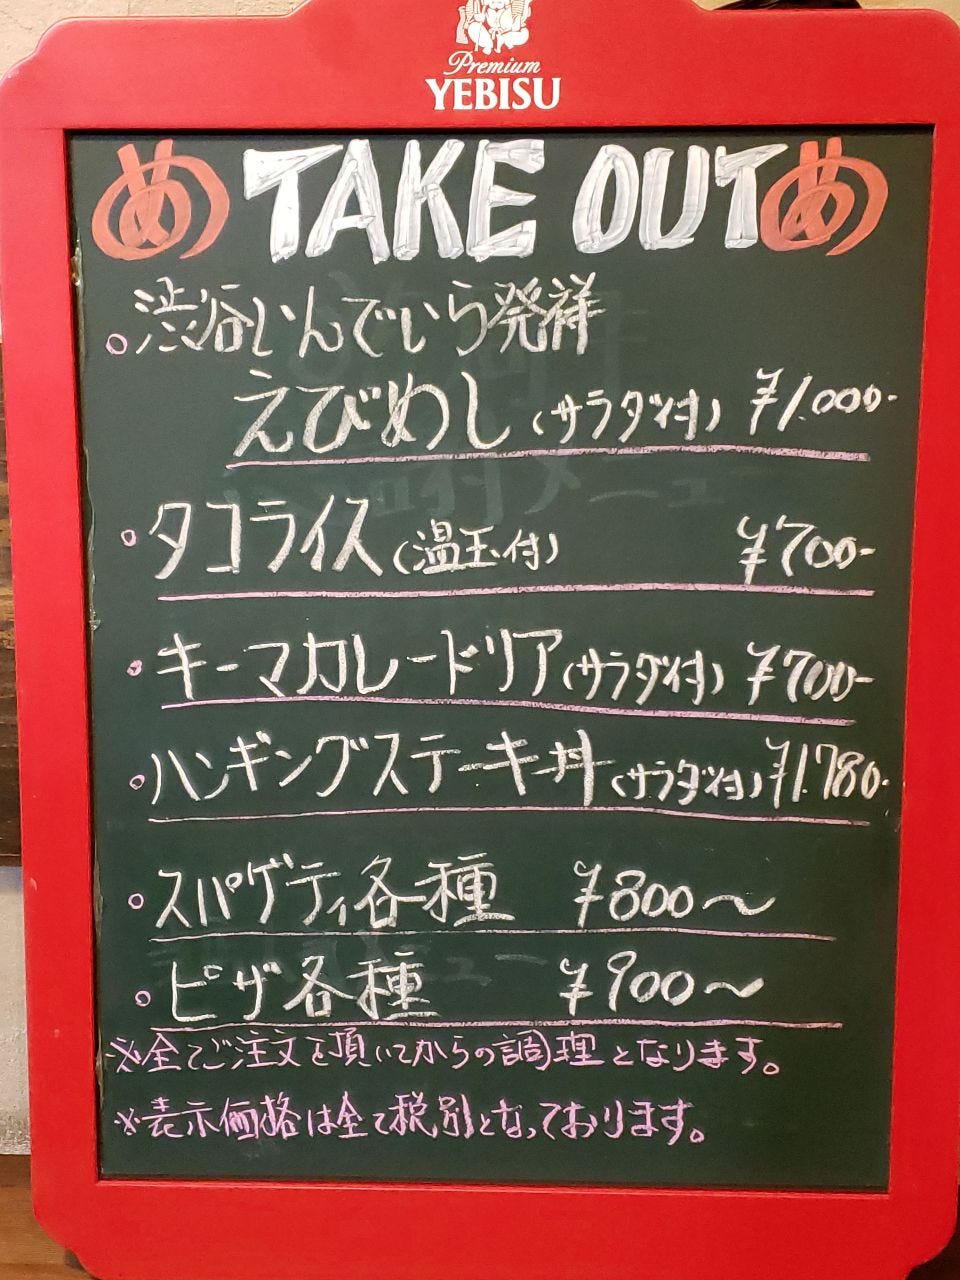 Premium
YEBISU
め TAKE OUT め
渋谷いんでいら発祥
えびめし(サラダ付) ¥1.000-
タコライス(温玉付) ¥700-
キーマカレードリア(サラダ付) ¥700-
ハンギングステーキ丼(サラダ付) ¥1.780-
スパゲティ各種 ¥800〜
ピザ各種 ¥900〜
※全てご注文を頂いてからの調理となります。
※表示価格は全て税別となっております。